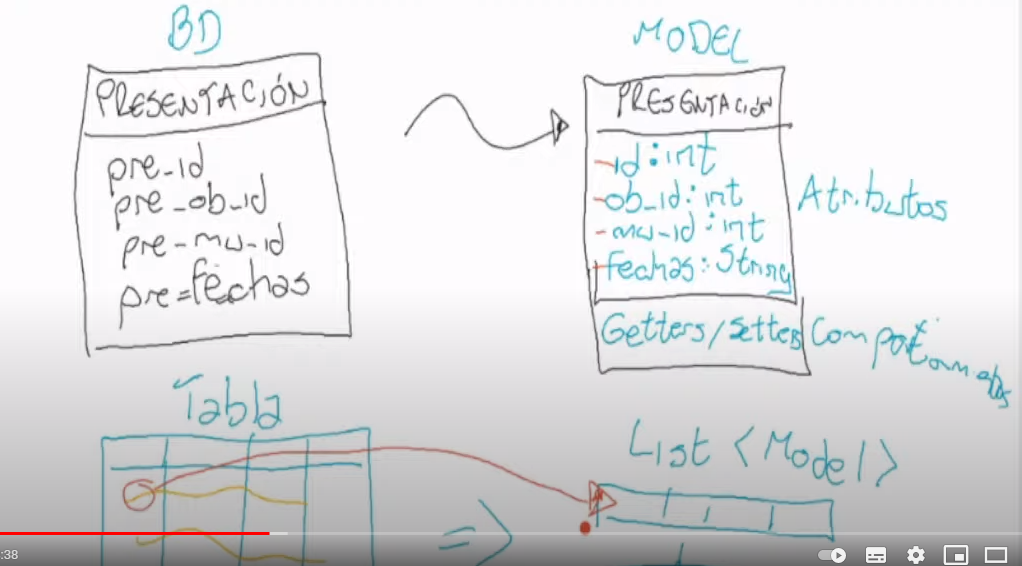 BD
PRESENTACIÓN
pre_id
pre_ob_id
pre-mu-id
pre=fechas
MODEL
PRESENTACIÓN
-id:int
-ob_id:int
-mu-id:int
-fechas:String
Atributos
Getters/Setters
Comportamientos
Tabla
List <Model>
=>
:38